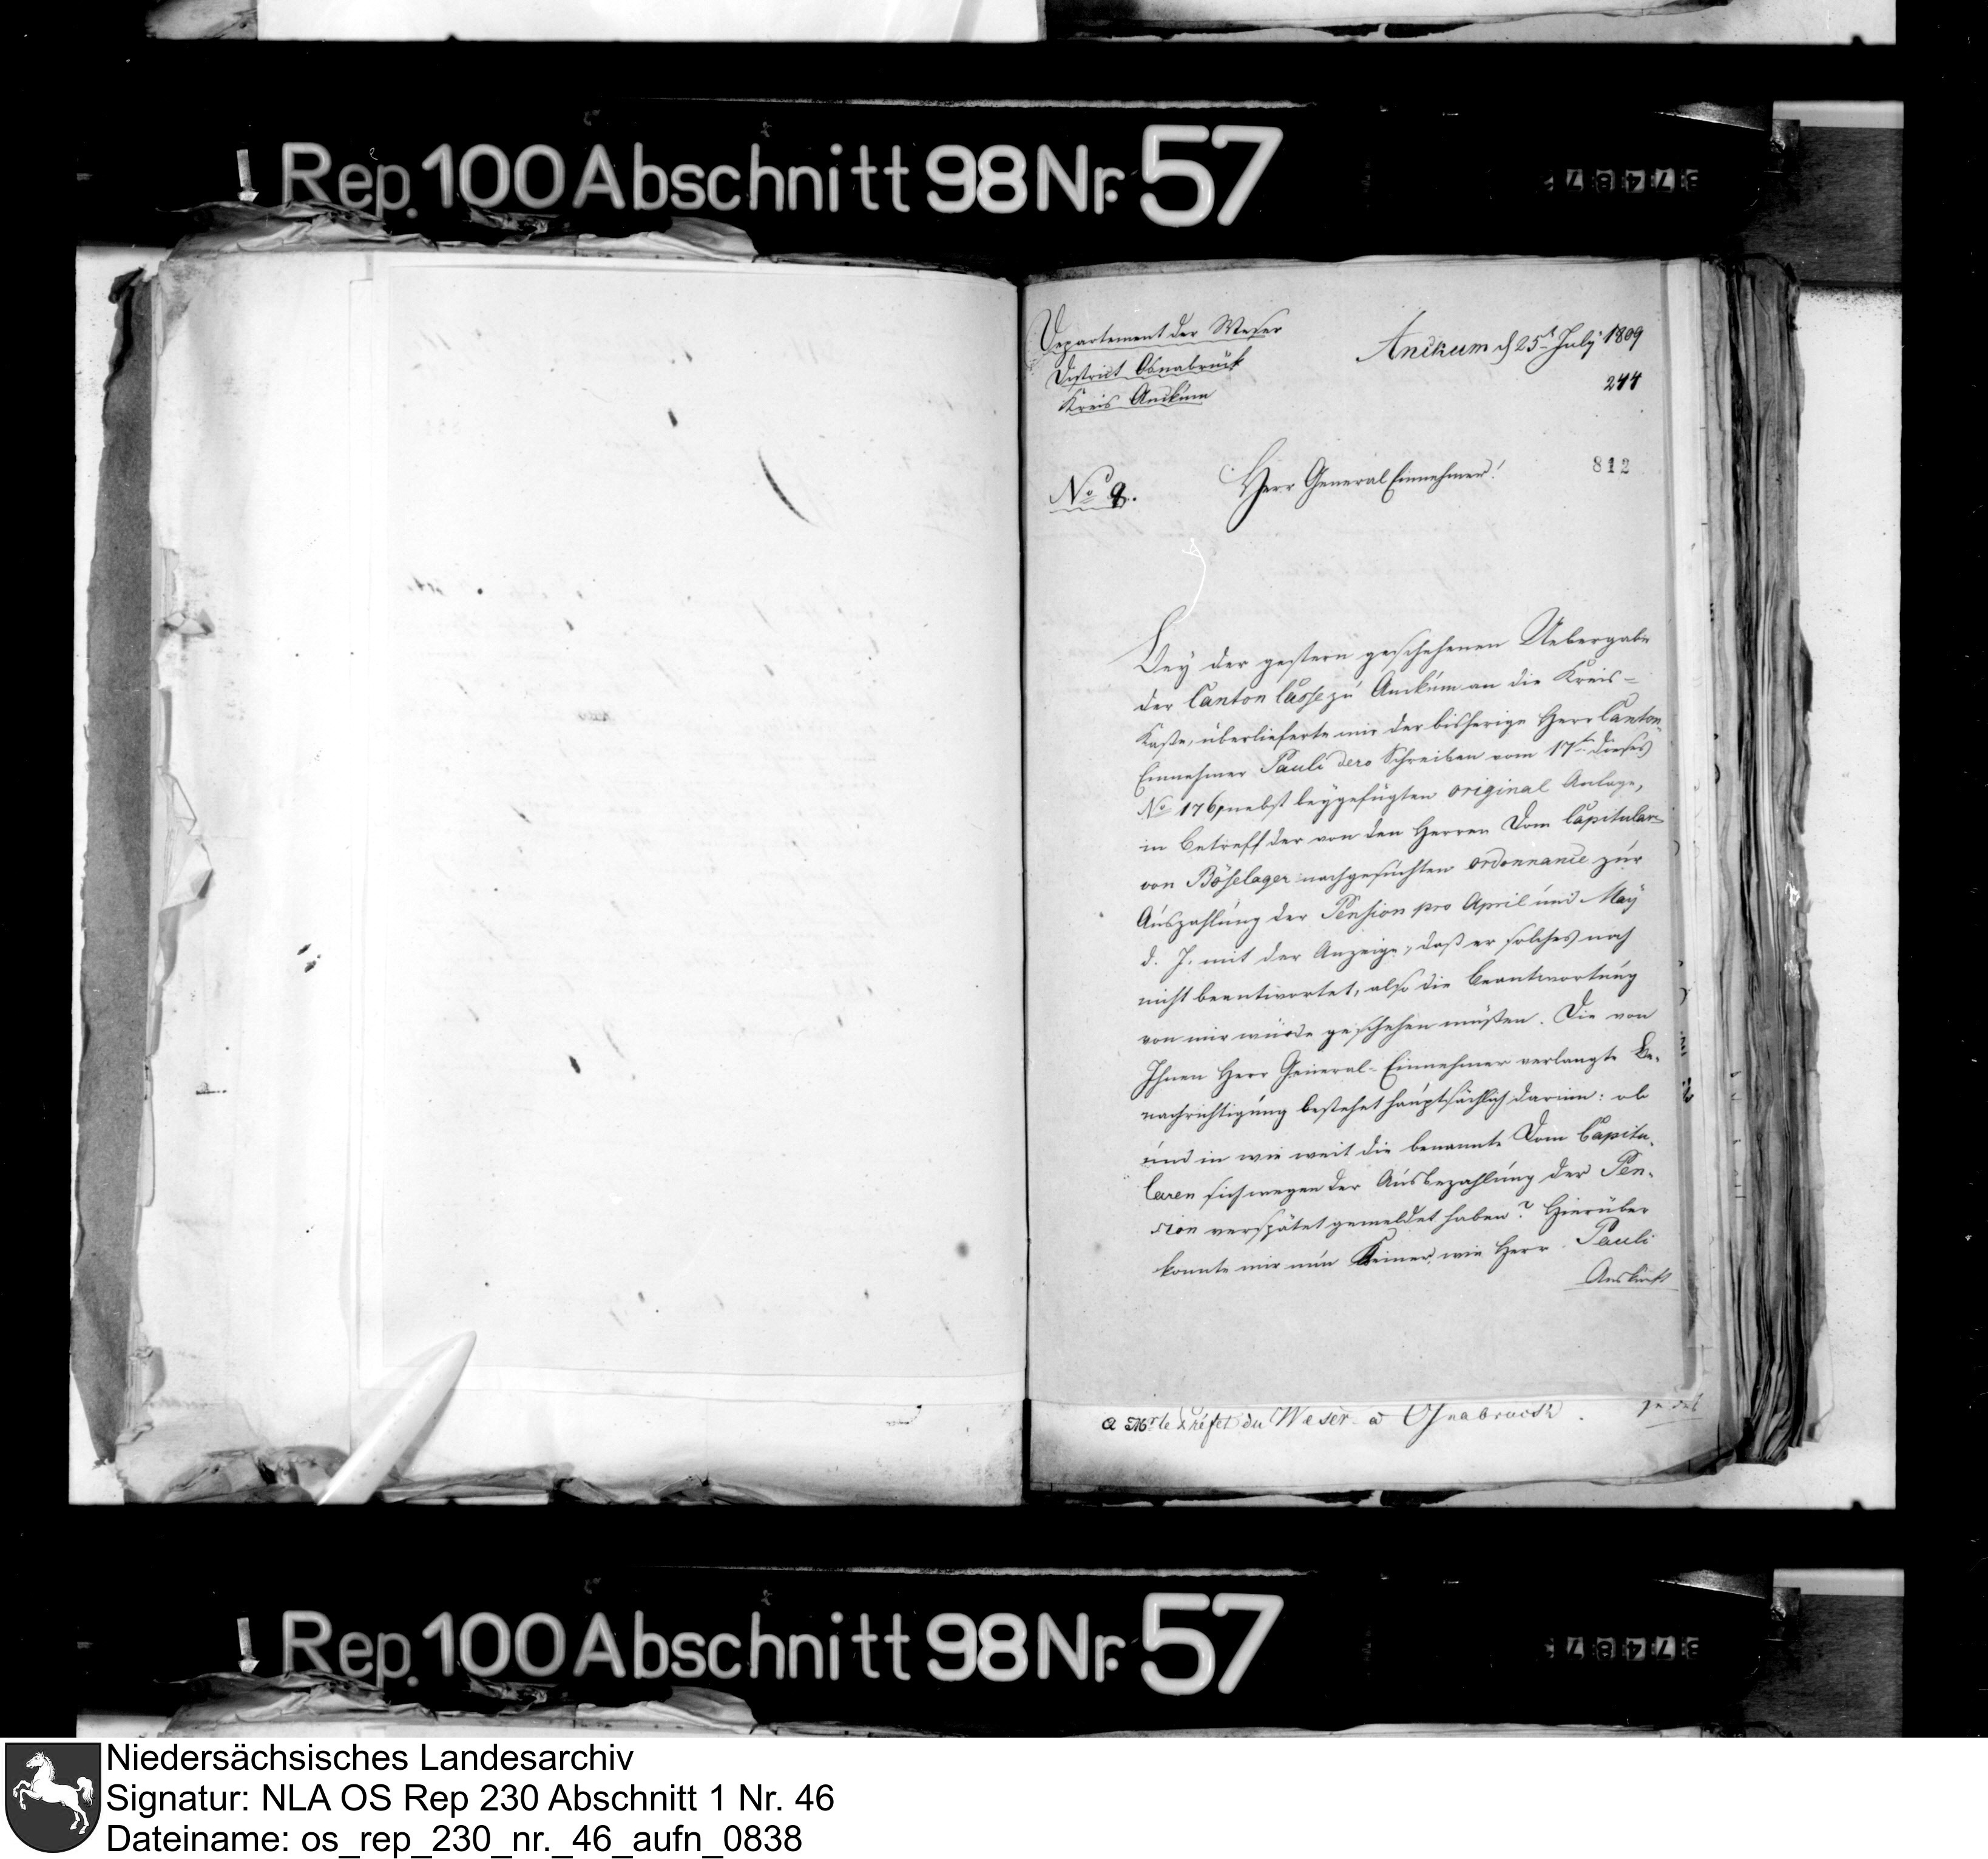 Rep. 100 Abschnitt 98 Nr. 57
Departement der Weser
District Osnabrück
Kreis Anckum
Anckum d 25t July 1809
244
812
No 9.
Herr General Einnehmer!
Bey der gestern geschehenen Uebergabe
der Canton Casse zu Anckum an die Kreis-
Kaße, überlieferte mir der bisherige Herr Canton
Einnehmer Pauli dero Schreiben vom 17ten dieses
No 176, nebst beygefügten original Anlage,
in Betreff der von den Herren Dom Capitularen
von Böselager nachgesuchten ordonnance zur
Auszahlung der Pension pro April und May
d. J. mit der Anzeige, daß er solches noch
nicht beantwortet, also die Beantwortung
von mir würde geschehen müßen. Die von
Ihnen Herr General-Einnehmer verlangte Be-
nachrichtigung bestehet hauptsächlich darinn: ob
und in wie weit die benannte Dom Capitu-
laren sich wegen der Ausbezahlung der Pen-
sion verspätet gemeldet haben? Hierüber
konnte mir nun Keiner, wie Herr Pauli
Auskunft
a Mr le Préfet du Weser a Osnabruck.
Rep. 100 Abschnitt 98 Nr. 57
Niedersächsisches Landesarchiv
Signatur: NLA OS Rep 230 Abschnitt 1 Nr. 46
Dateiname: os_rep_230_nr._46_aufn_0838